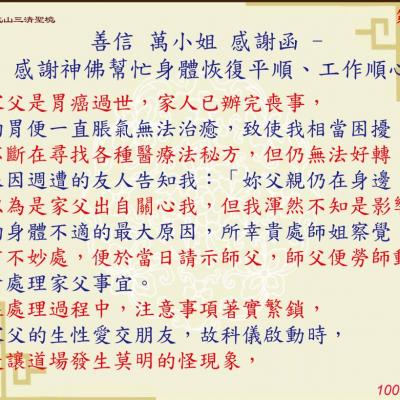 山三清聖境
善信 萬小姐 感謝函 –
感謝神佛幫忙身體恢復平順、工作順心
家父是胃癌過世，家人已辦完喪事，
的胃便一直脹氣無法治癒，致使我相當困擾
不斷在尋找各種醫療法秘方，但仍無法好轉
因週遭的友人告知我：「妳父親仍在身邊
以為是家父出自關心我，但我渾然不知是影
的身體不適的最大原因，所幸貴處師姐察覺
不妙處，便於當日請示師父，師父便勞師動
處理家父事宜。
處理過程中，注意事項著實繁鎖，
家父的生性愛交朋友，故科儀啟動時，
讓道場發生莫明的怪現象，
100